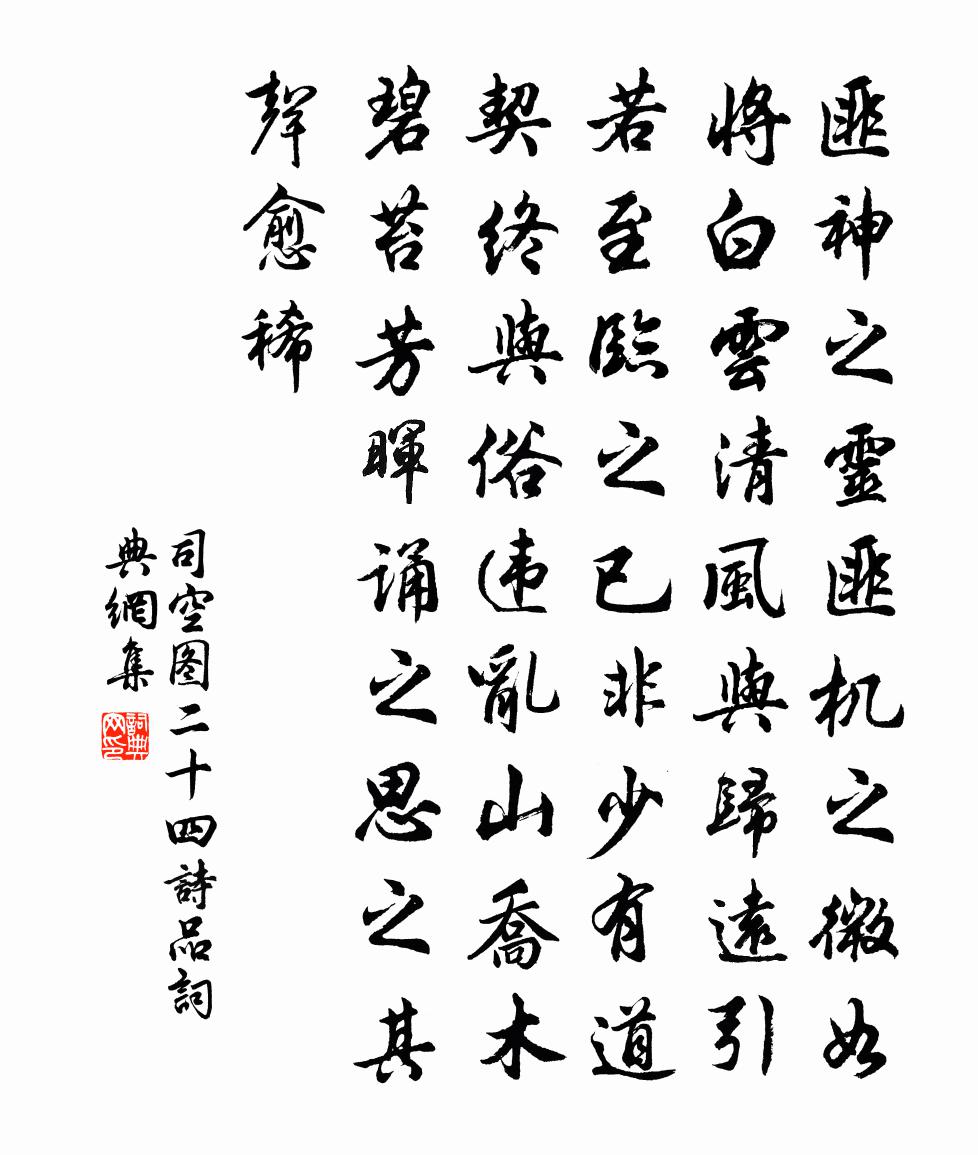 匪神之靈匪机之微如
將白雲清風與歸遠引
若至臨之已非少有道
契終與俗违亂山喬木
碧苔芳暉誦之思之其
聲愈稀
司空图二十四詩品詞
典網集
詞典
网印